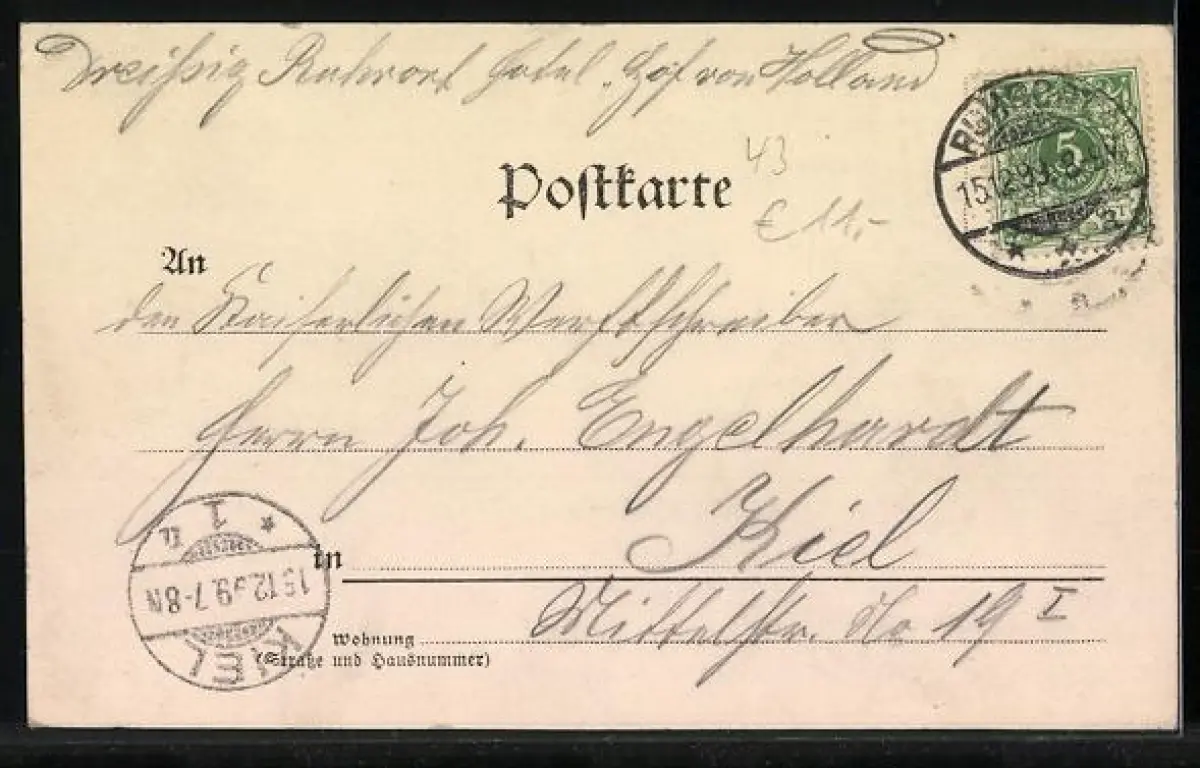 Dreißig Ruhrort Hotel „Hof von Holland
5
15.12.99
43
Postkarte
€ 11,-
An
den Kaiserlichen Werftschreiber
Herrn Joh. Engelhardt
in Kiel
Wohnung Mittelstr. No 19 I
(Straße und Hausnummer)
KIEL
15.12.99.7-8N
1